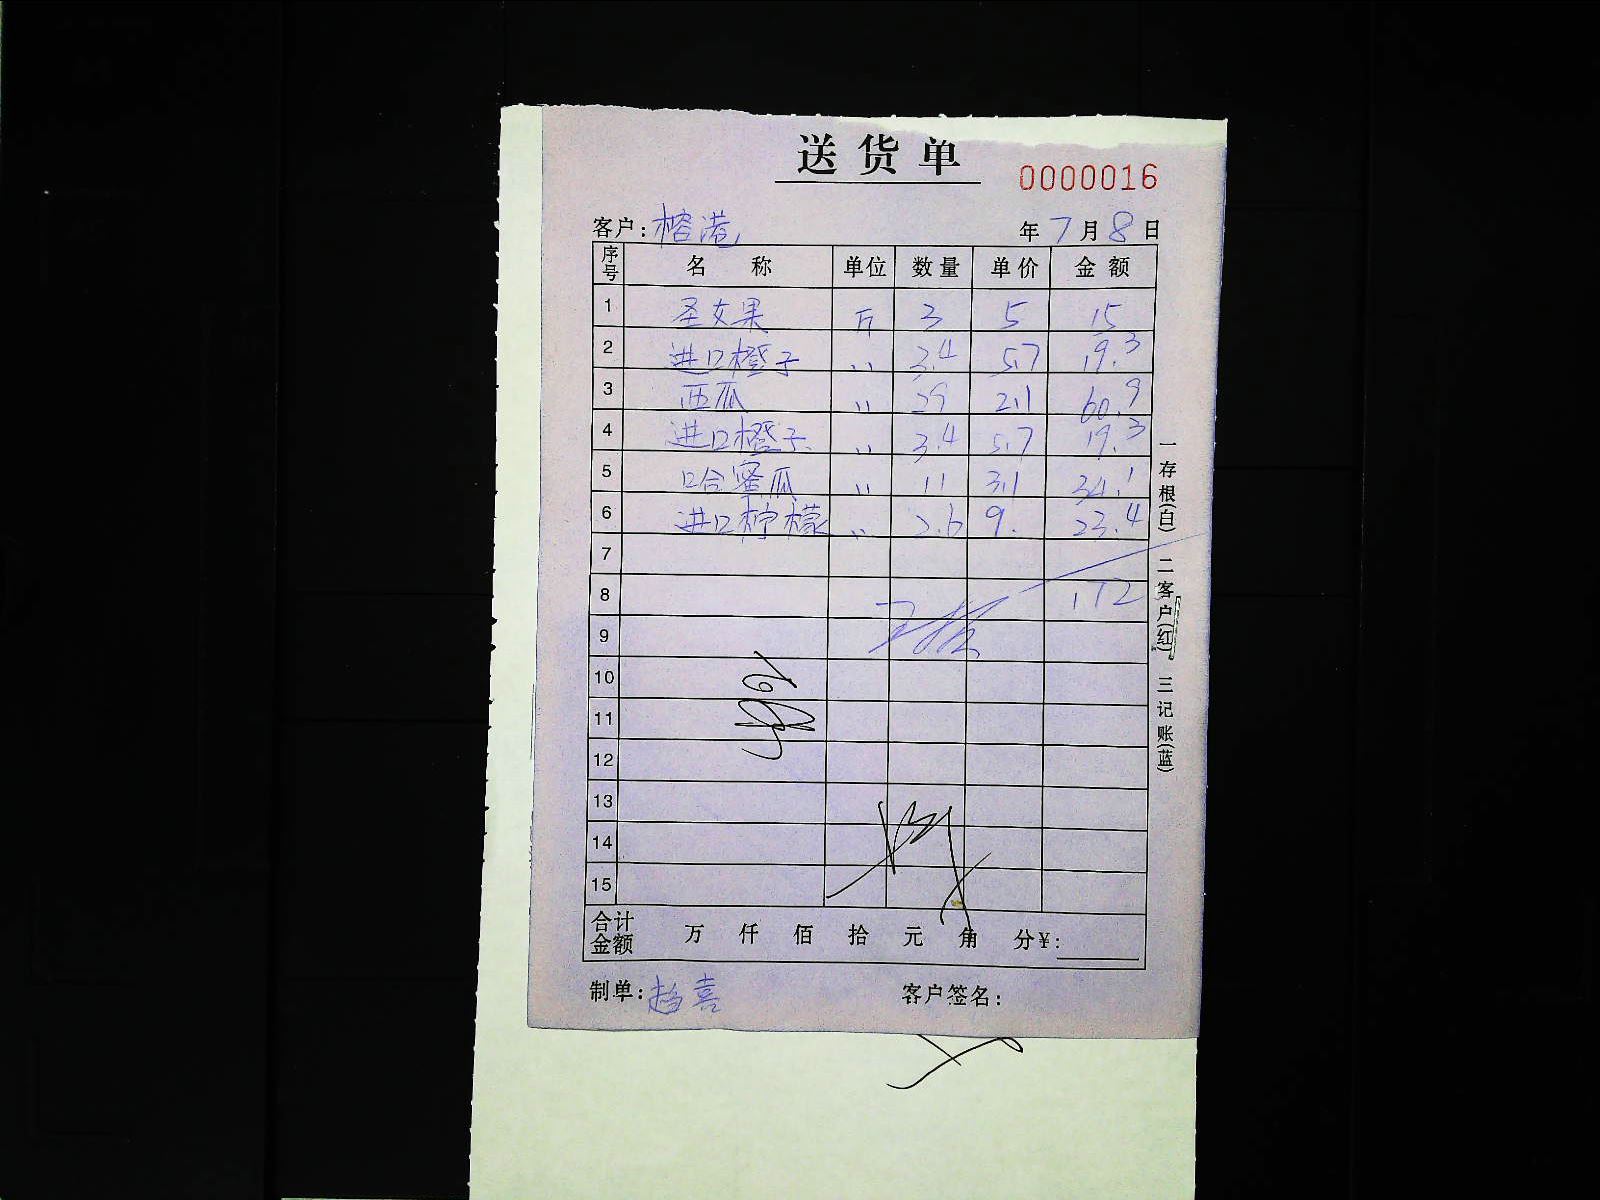 送货单
0000016
客户: 榕港 年 7 月 8 日
序号 名 称 单位 数量 单价 金额
1 圣女果 斤 3 5 15
2 进口橙子 〃 3.4 5.7 19.3
3 西瓜 〃 29 2.1 60.9
4 进口橙子 〃 3.4 5.7 19.3
5 哈蜜瓜 〃 11 3.1 34.1
6 进口柠檬 〃 2.6 9. 23.4
7
8 172
9
10
11
12
13
14
15
合计金额 万 仟 佰 拾 元 角 分 ¥:
制单: 赵喜 客户签名:
一存根(白) 二客户(红) 三记账(蓝)